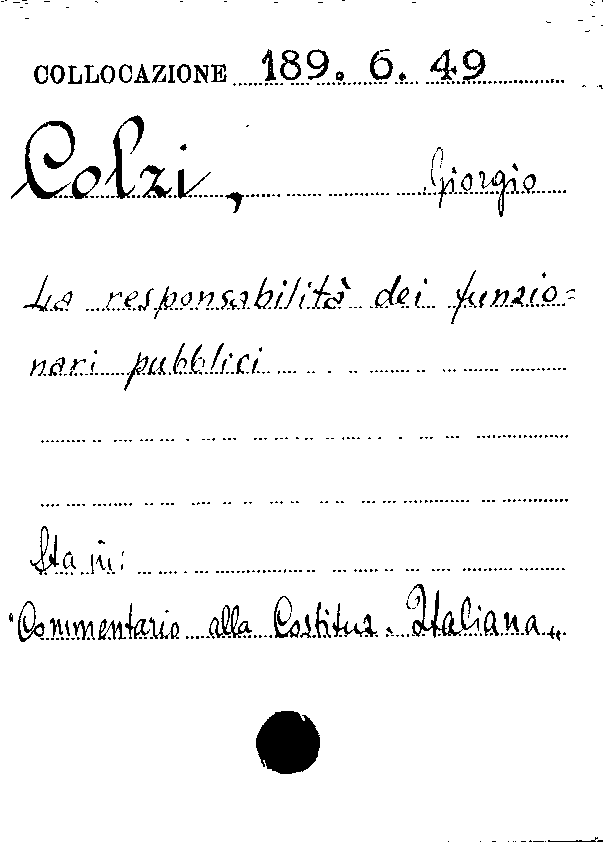 COLLOCAZIONE 189. 6. 49
Colzi, Giorgio
La responsabilità dei funzio=
nari pubblici
Sta in:
"Commentario alla Costituz. Italiana„